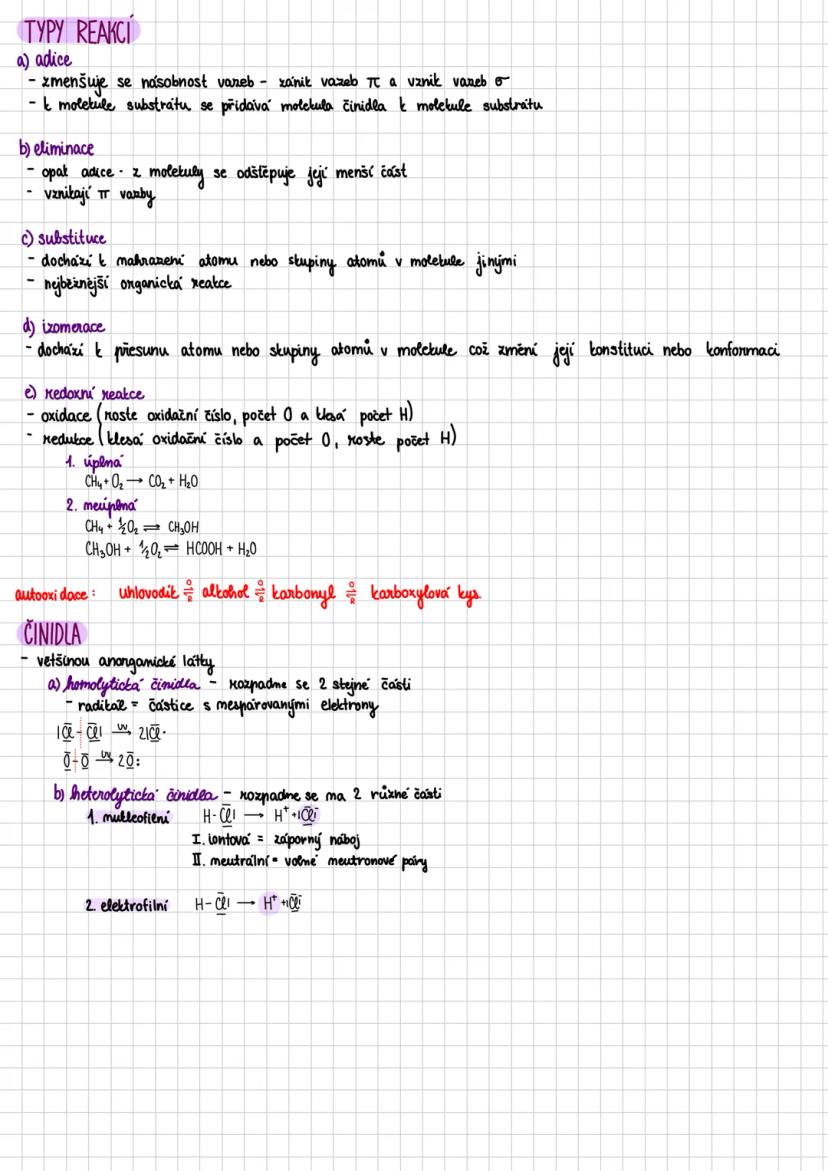 TYPY REAKCÍ
a) adice
- zmenšuje se násobnost vazeb - zánik vazeb π a vznik vazeb σ
- k molekule substrátu se přidává molekula činidla k molekule substrátu
b) eliminace
- opak adice - z molekuly se odštěpuje její menší část
- vznikají π vazby
c) substituce
- dochází k nahrazení atomu nebo skupiny atomů v molekule jinými
- nejběžnější organická reakce
d) izomerace
- dochází k přesunu atomu nebo skupiny atomů v molekule což změní její konstituci nebo konformaci
e) redoxní reakce
- oxidace (roste oxidační číslo, počet O a klesá počet H)
- redukce (klesá oxidační číslo a počet O, roste počet H)
1. úplná
CH₄ + O₂ → CO₂ + H₂O
2. neúplná
CH₄ + ½O₂ ⇌ CH₃OH
CH₃OH + ½O₂ ⇌ HCOOH + H₂O
autooxidace: uhlovodík O⇌R alkohol O⇌R karbonyl O⇌R karboxylová kys.
ČINIDLA
- většinou anorganické látky
a) homolytická činidla - rozpadne se 2 stejné části
- radikál = částice s nespárovanými elektrony
|C̲̅l̅ - C̲̅l̅| UV→ 2|C̲̅l̅·
O̲̅-O̲̅ UV→ 2O̲̅:
b) heterolytická činidla - rozpadne se na 2 různé části
1. nukleofilní H-C̲̅l̅| → H⁺ + |C̲̅l̅|⁻
I. iontová = záporný náboj
II. neutrální = volné neutronové páry
2. elektrofilní H-C̲̅l̅| → H⁺ + |C̲̅l̅|⁻